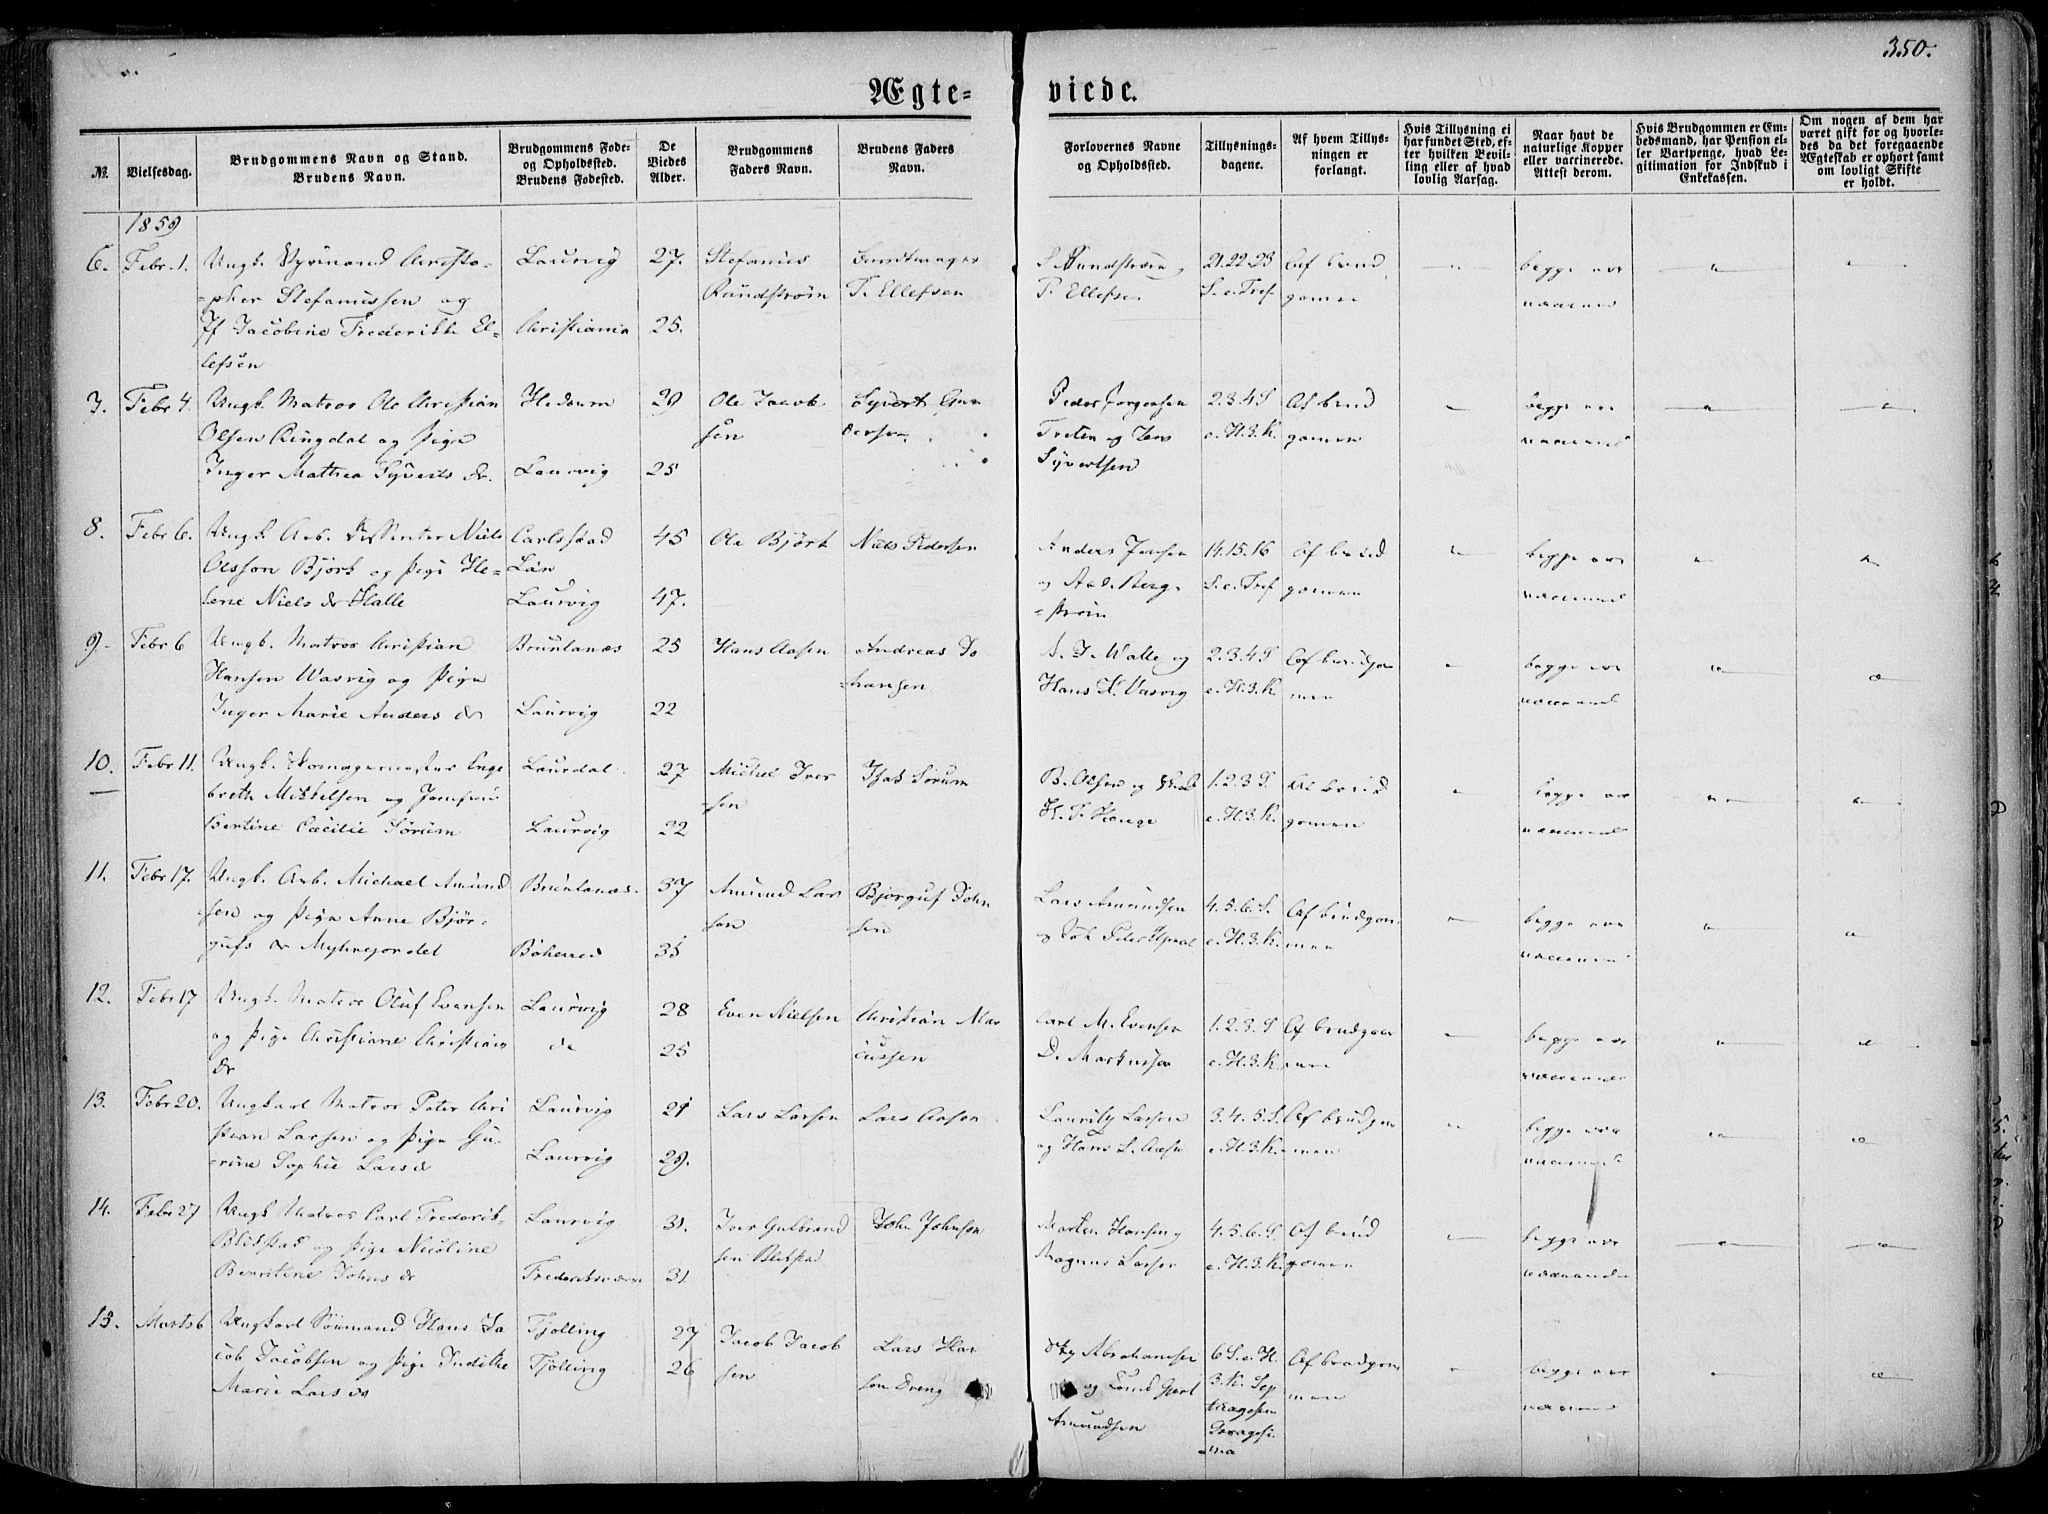 350.
Ægte=
viede.
№.
Vielsesdag.
Brudgommens Navn og Stand.
Brudens Navn.
Brudgommens Føde=
og Opholdssted.
Brudens Fødested.
De
Viedes
Alder.
Brudgommens
Faders Navn.
Brudens Faders
Navn.
Forlovernes Navne
og Opholdssted.
Tillysnings-
dagene.
Af hvem Tillys-
ningen er
forlangt.
Hvis Tillysning ei
har fundet Sted, ef-
ter hvilken Bevil-
ling eller af hvad
lovlig Aarsag.
Naar havt de
naturlige Kopper
eller vaccinerede.
Attest derom.
Hvis Brudgommen er Em-
bedsmand, har Pension el-
ler Vartpenge, hvad Le-
gitimation for Indskud i
Enkekassen.
Om nogen af dem har
været gift før og hvorle-
des da det foregaaende
Ægteskab er ophørt samt
om lovligt Skifte
er holdt.
1859
6. Febr. 1. Ungk. Christo-
pher Stefanussen og
Jf Jacobine Frederikke El-
lefsen
Laurvig 27. Stefanus
Rundstrøm
T. Ellefsen
Christiania 25.
S. Rundstrøm
T. Ellefsen
21.22.23
S. e. Tref.
Af brud
gomen
begge vac
7. Febr 4. Ungk. Matros Ole Christian
Olsen Ringdal og Pige
Inger Mathea Syverts dr.
Hedrum 29 Ole Jacob
sen
Syvert Gun
dersen
Laurvig 25
Peder Jørgensen
Treten og Jens
Syvertsen
2.3.4 S
e. H. 3. K.
Af brud
gomen
begge vac
8. Febr 6. Ungk. Arb. Niels
Olsson Björk og Pige He-
lene Niels dr Halle
Carlsstad
Län
Laurvig
45
47.
Ole Björk
Niels Pedersen
Anders Jensen
og And. Berg-
strøm
14.15.16
S. e. Tref
Af brud
gomen
begge vac
9. Febr 6 Ungk. Matros Christian
Hansen Wasvig og Pige
Inger Marie Anders dr
Brunlanæs
Laurvig
25
22
Hans Aasen
Andreas Jo
hansen
A. J. Walle og
Hans K. Vasvig
2.3.4 S
e. H. 3. K.
Af brudgo
men
begge vac
10. Febr 11. Ungk. Skomagermester Enge
breth Mikkelsen og Jomfru
Bertine Cæcilie Sørum
Laurdal
Laurvig
27
22
Michel Iver
sen
Isak Sørum
B. Olsen og
H. T. Hauge
1.2.3 S
e. H. 3. K.
Af brud
gomen
begge vac
11. Febr 17. Ungk. Arb. Michael Amund
sen og Pige Anne Bjør-
gufs dr Myhrejordet
Brunlanæs
Bøherred
37
35
Amund Lar
sen
Bjørguf John
sen
Lars Amundsen
4.5.6. S.
e. H. 3. K.
Af brudgom
men
begge vac
12. Febr 17 Ungk. Matros Oluf Evensen
og Pige Christiane Christians
dr
Laurvig
do
28
25
Even Nielsen
Christian Mar
cussen
Carl M. Evensen
D. Markussen
1.2.3. S
e. H. 3. K.
Af brudgom
men
begge vac
13. Febr 20. Ungkarl Matros Peter Chri
stian Larsen og Pige Gu-
rine Sophie Lars d
Laurvig
Laurvig
21
29.
Lars Larsen
Lars Aasen
Lauritz Larsen
og Hans L. Aasen
3.4.5 S.
e. H. 3. K.
Af brudgo
men
begge vac
14. Febr 27 Ungk Matros Carl Frederik
Blikstad og Pige Nicoline
Berntine Johns dr
Laurvig
Frederiksværn
31.
31
Iver Gulbrand
sen Blikstad
John Johnsen
Morten Hansen og
Magnus Larsen
4.5.6. S
e. H. 3. K.
Af brud
gomen
begge vac
15. Marts 6 Ungkarl Sømand Hans Ja
cob Jacobsen og Pige Indikke
Marie Lars dr
Tjølling
Tjølling
27
26
Jacob Jacob
sen
Lars Han
sen Dreng
Abrahamsen
og
Amundsen
6 S. e. H.
3. K. Sep
tuagesima
Sexagesi
ma
Af brudgom
men
begge vac